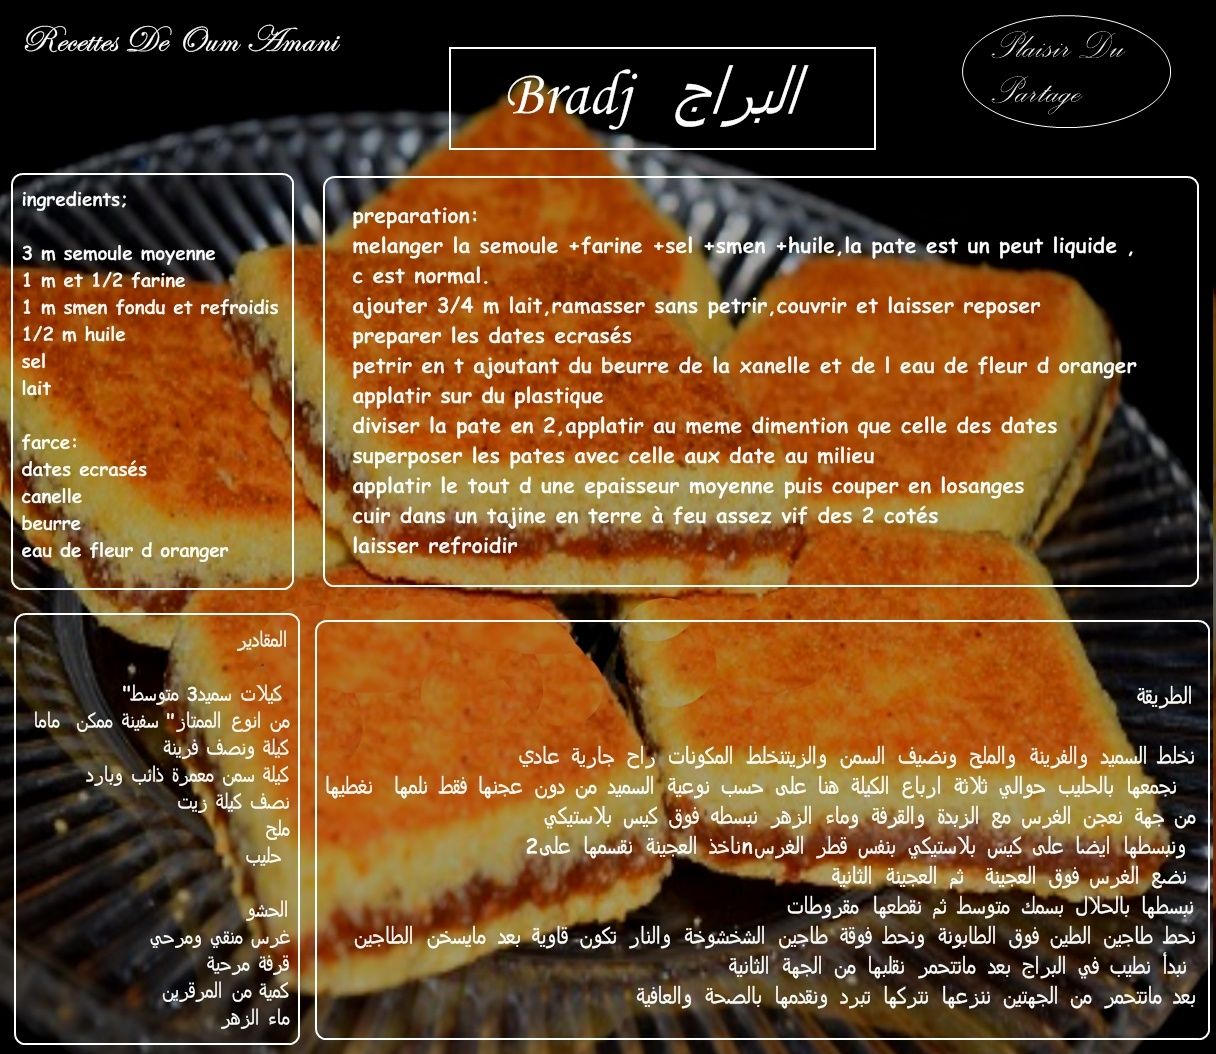 Recettes De Oum Amani
Bradj البراج
Plaisir Du
Partage
ingredients;
3 m semoule moyenne
1 m et 1/2 farine
1 m smen fondu et refroidis
1/2 m huile
sel
lait
farce:
dates ecrasés
canelle
beurre
eau de fleur d oranger
preparation:
melanger la semoule +farine +sel +smen +huile,la pate est un peut liquide ,
c est normal.
ajouter 3/4 m lait,ramasser sans petrir,couvrir et laisser reposer
preparer les dates ecrasés
petrir en t ajoutant du beurre de la xanelle et de l eau de fleur d oranger
applatir sur du plastique
diviser la pate en 2,applatir au meme dimention que celle des dates
superposer les pates avec celle aux date au milieu
applatir le tout d une epaisseur moyenne puis couper en losanges
cuir dans un tajine en terre à feu assez vif des 2 cotés
laisser refroidir
المقادير
كيلات سميد3 متوسط"
من انوع الممتاز" سفينة ممكن ماما
كيلة ونصف فرينة
كيلة سمن معمرة ذائب وبارد
نصف كيلة زيت
ملح
حليب
الحشو
غرس منقي ومرحي
قرفة مرحية
كمية من المرقرين
ماء الزهر
الطريقة
نخلط السميد والفرينة والملح ونضيف السمن والزيتنخلط المكونات راح جارية عادي
نجمعها بالحليب حوالي ثلاثة ارباع الكيلة هنا على حسب نوعية السميد من دون عجنها فقط نلمها نغطيها
من جهة نعجن الغرس مع الزبدة والقرفة وماء الزهر نبسطه فوق كيس بلاستيكي
ونبسطها ايضا على كيس بلاستيكي بنفس قطر الغرسnناخذ العجينة نقسمها على2
نضع الغرس فوق العجينة ثم العجينة الثانية
نبسطها بالحلال بسمك متوسط ثم نقطعها مقروطات
نحط طاجين الطين فوق الطابونة ونحط فوقة طاجين الشخشوخة والنار تكون قاوية بعد مايسخن الطاجين
نبدأ نطيب في البراج بعد ماتتحمر نقلبها من الجهة الثانية
بعد ماتتحمر من الجهتين ننزعها نتركها تبرد ونقدمها بالصحة والعافية